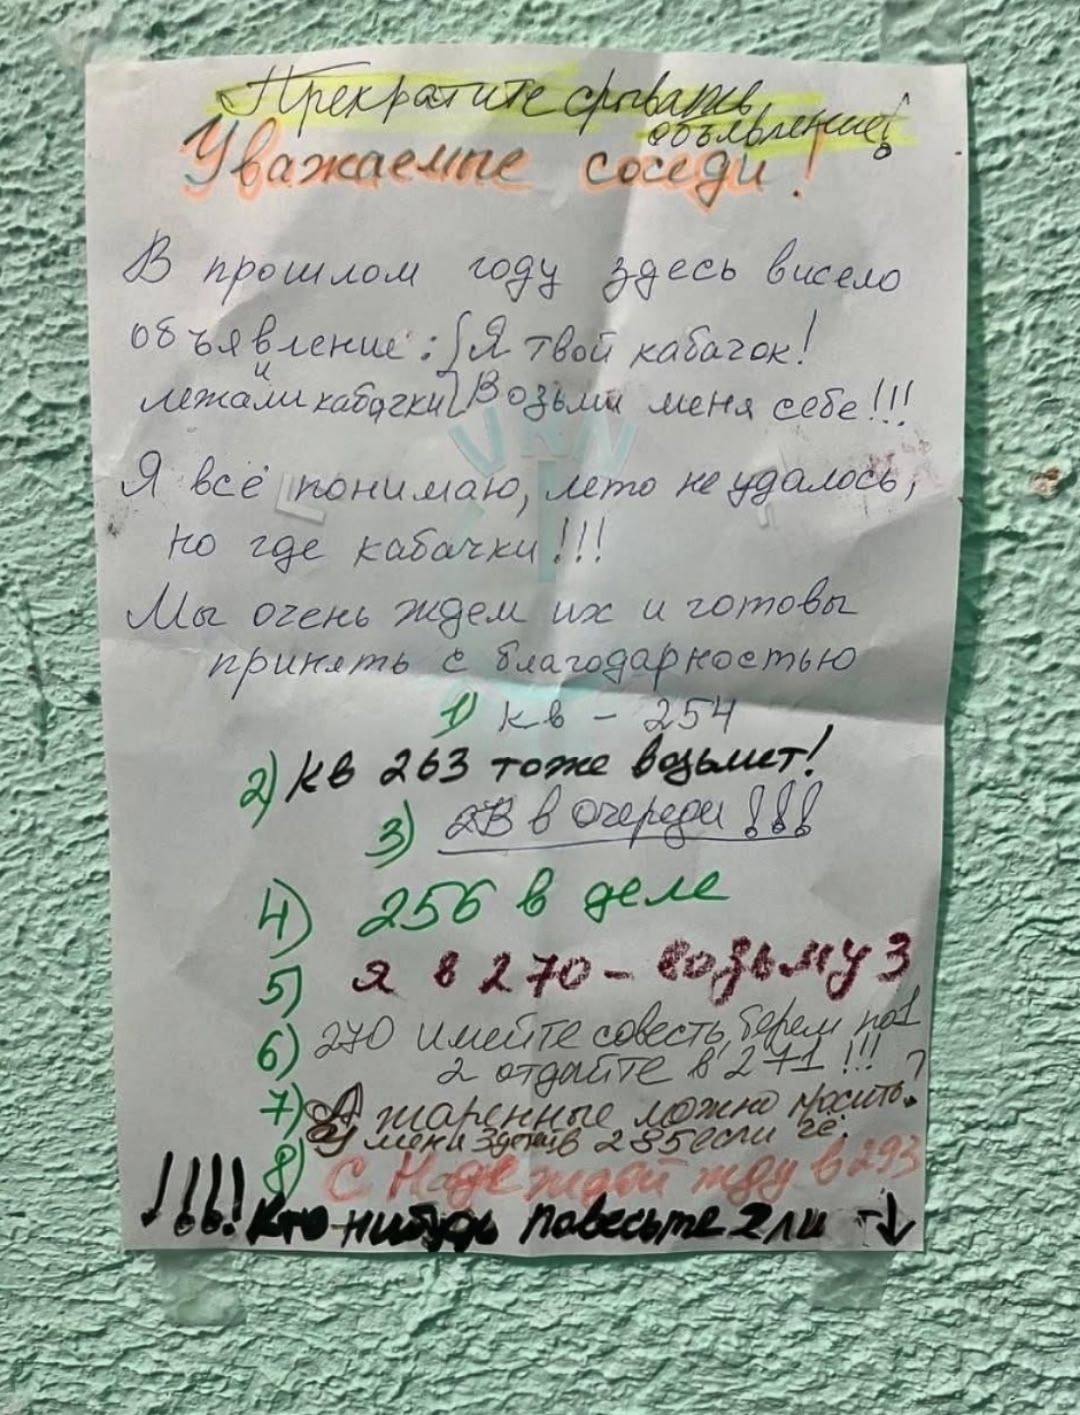 Прекратите срывать
объявление!
Уважаемые соседи!
В прошлом году здесь висело
объявление: Я твой кабачок!
и
лежали кабачки Возьми меня себе!!!
Я всё понимаю, лето не удалось,
но где кабачки!!!
Мы очень ждем их и готовы
принять с благодарностью
1) кв - 254
2) кв 263 тоже возьмет!
3) 2В в очереди!!!
4) 256 в деле
5) я в 270 - возьму 3
6) 270 имейте совесть, берем по 1
2 отдайте в 271!!!
7) А жаренные можно просить?
У меня 285 если чё.
8) С Надеждой жду в 293
!!!! Кто-нибудь повесьте 2 ли ↓